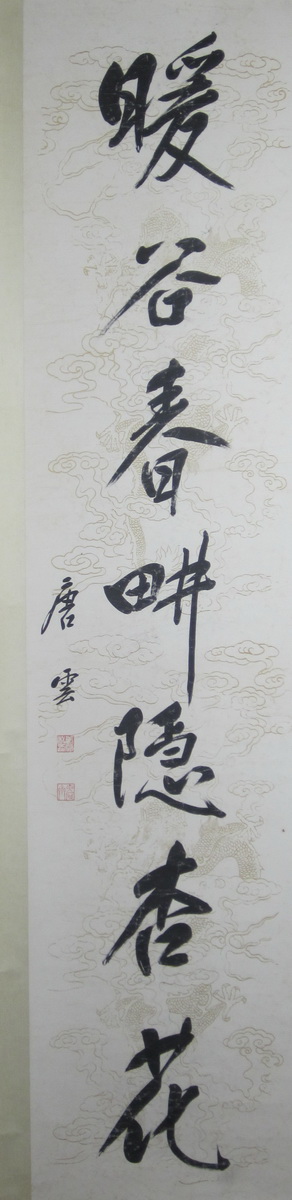 暖谷春畊隐杏花
唐雲